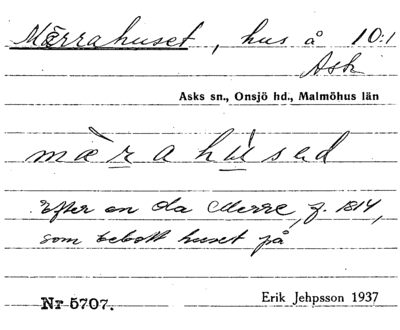 Märrahuset, hus å 10:1
Ask
Asks sn., Onsjö hd., Malmöhus län
mæ̀rahúsed
Efter en Ola Merre, f. 1814,
som bebott huset på
Nr 5707.
Erik Jehpsson 1937